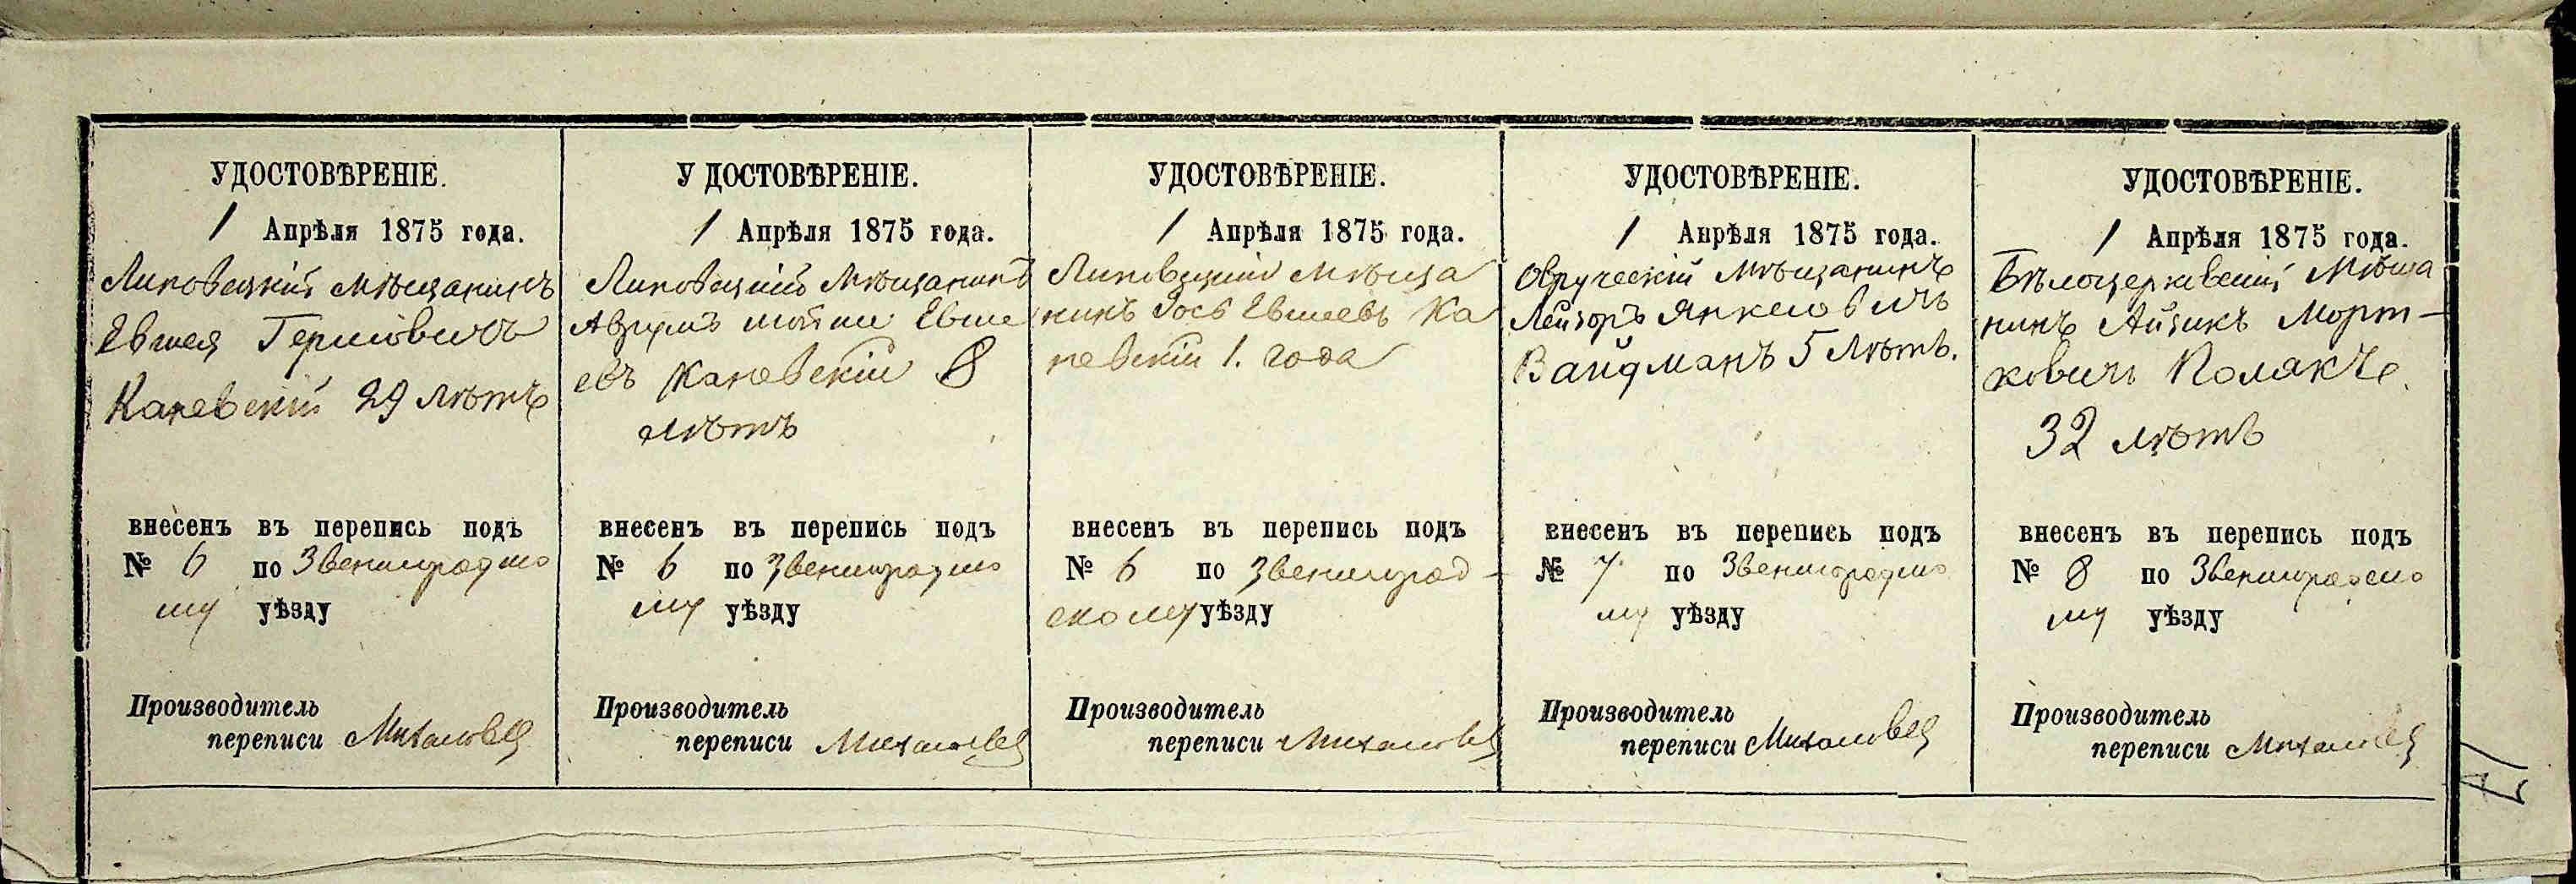 УДОСТОВѢРЕНІЕ.
1 Апрѣля 1875 года.
Липовецкій мѣщанинъ
Евшея Гершовичъ
Каневскій 29 лѣтъ
внесенъ въ перепись подъ
№ 6 по Звенигородско
му уѣзду
Производитель
переписи
У ДОСТОВѢРЕНІЕ.
1 Апрѣля 1875 года.
Липовецкій мѣщанинъ
Аврумъ мошко Евше
евъ Каневскій 8
лѣтъ
внесенъ въ перепись подъ
№ 6 по Звенигородско
му уѣзду
Производитель
переписи
УДОСТОВѢРЕНІЕ.
1 Апрѣля 1875 года.
Липовецкій мѣща
нинъ Іось Евшеевъ Ка
невскій 1. года
внесенъ въ перепись подъ
№ 6 по Звенигород-
скому уѣзду
Производитель
переписи
УДОСТОВѢРЕНІЕ.
1 Апрѣля 1875 года.
Овруческій мѣщанинъ
Лейзоръ Янкелевичъ
Вайдманъ 5 лѣтъ.
внесенъ въ перепись подъ
№ 7 по Звенигородско
му уѣзду
Производитель
переписи
УДОСТОВѢРЕНІЕ.
1 Апрѣля 1875 года.
Бѣлоцерковскій мѣща
нинъ Айзикъ Морт-
ковичъ Полякъ.
32 лѣтъ
внесенъ въ перепись подъ
№ 8 по Звенигородско
му уѣзду
Производитель
переписи